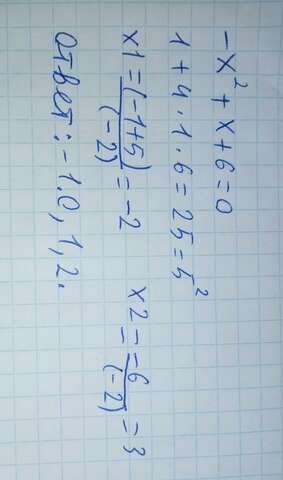 -x² + x + 6 = 0
1 + 4 · 1 · 6 = 25 = 5²
x1 = (-1+5)/(-2) = -2 x2 = -6/(-2) = 3
ответ: -1.0, 1, 2.